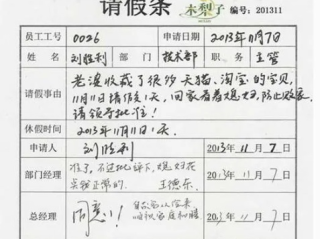 请假条 木梨子 编号: 201311
员工工号 0026 申请日期 2013年11月7日
姓名 刘胜利 部门 技术部 职务 主管
请假事由 老婆收藏了很多天猫、淘宝的宝贝,
11月11日请假1天,回家看着媳妇,防止败家,
请领导批准!
休假时间 2013年11月11日1天
申请人 刘胜利 2013年11月7日
部门经理 准了,不过批评下,媳妇败家
实属正常的. 王德东 2013年11月7日
总经理 同意!! 2013年11月7日